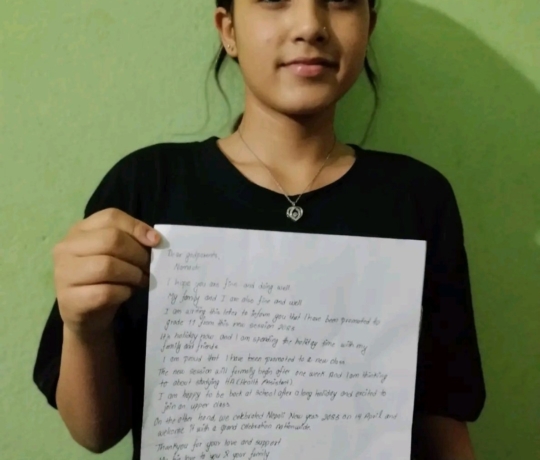 Dear
Namaste,
I hope you are fine and doing well.
My family and I am also fine and well.
I am writing this letter to inform you that I have been promoted to
grade 11 from this new session
My holiday now and I am spending the holiday time with my
family and friends.
I am proud that I have been promoted to a new class.
The new session will formally begin after one week and I am thinking
to about studying HA (Health Assistant)
I am happy to be back at school after a long holiday and excited to
join an upper class.
On the other hand, we celebrated Nepali New year on 14 April and
welcome it with a grand celebration nationwide.
Thankyou for your love and support!
to you & your family